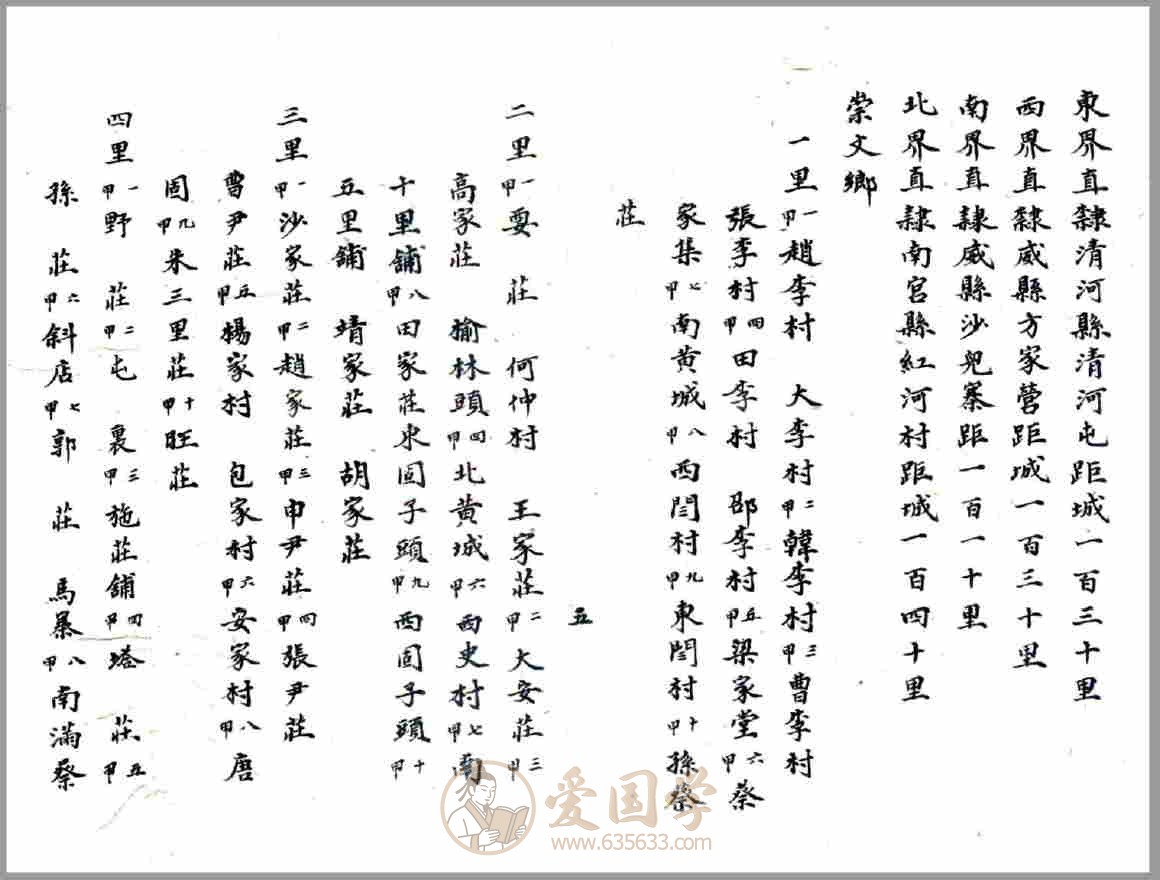 東界直隸清河縣清河屯距城一百三十里
西界直隸威縣方家營距城一百三十里
南界直隸威縣沙兒寨距一百一十里
北界直隸南宮縣紅河村距城一百四十里
崇文鄉
一里一甲趙李村 大李村二甲韓李村三甲曹李村
張李村四甲田李村 邵李村五甲梁家堂六甲蔡
家集七甲南黄城八甲西閆村九甲東閆村十甲孫蔡
莊
五
二里一甲耍 莊 何仲村 王家莊二甲大安莊三甲
高家莊 榆林頭四甲北黄城六甲西史村七甲南
十里鋪八甲田家莊東固子頭九甲西固子頭十甲
五里鋪 靖家莊 胡家莊
三里一甲沙家莊二甲趙家莊三甲申尹莊四甲張尹莊
曹尹莊五甲楊家村 包家村六甲安家村八甲唐
固九甲朱三里莊十甲旺莊
四里一甲野 莊二甲屯 裏三甲施莊鋪四甲塔 莊五甲
孫 莊六甲斜店七甲郭 莊 馬暴八甲南滿蔡
爱国学
www.635633.com